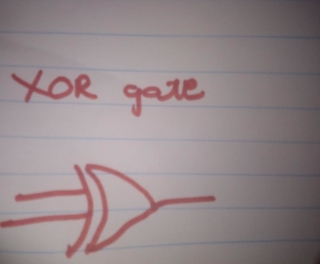 XOR gate